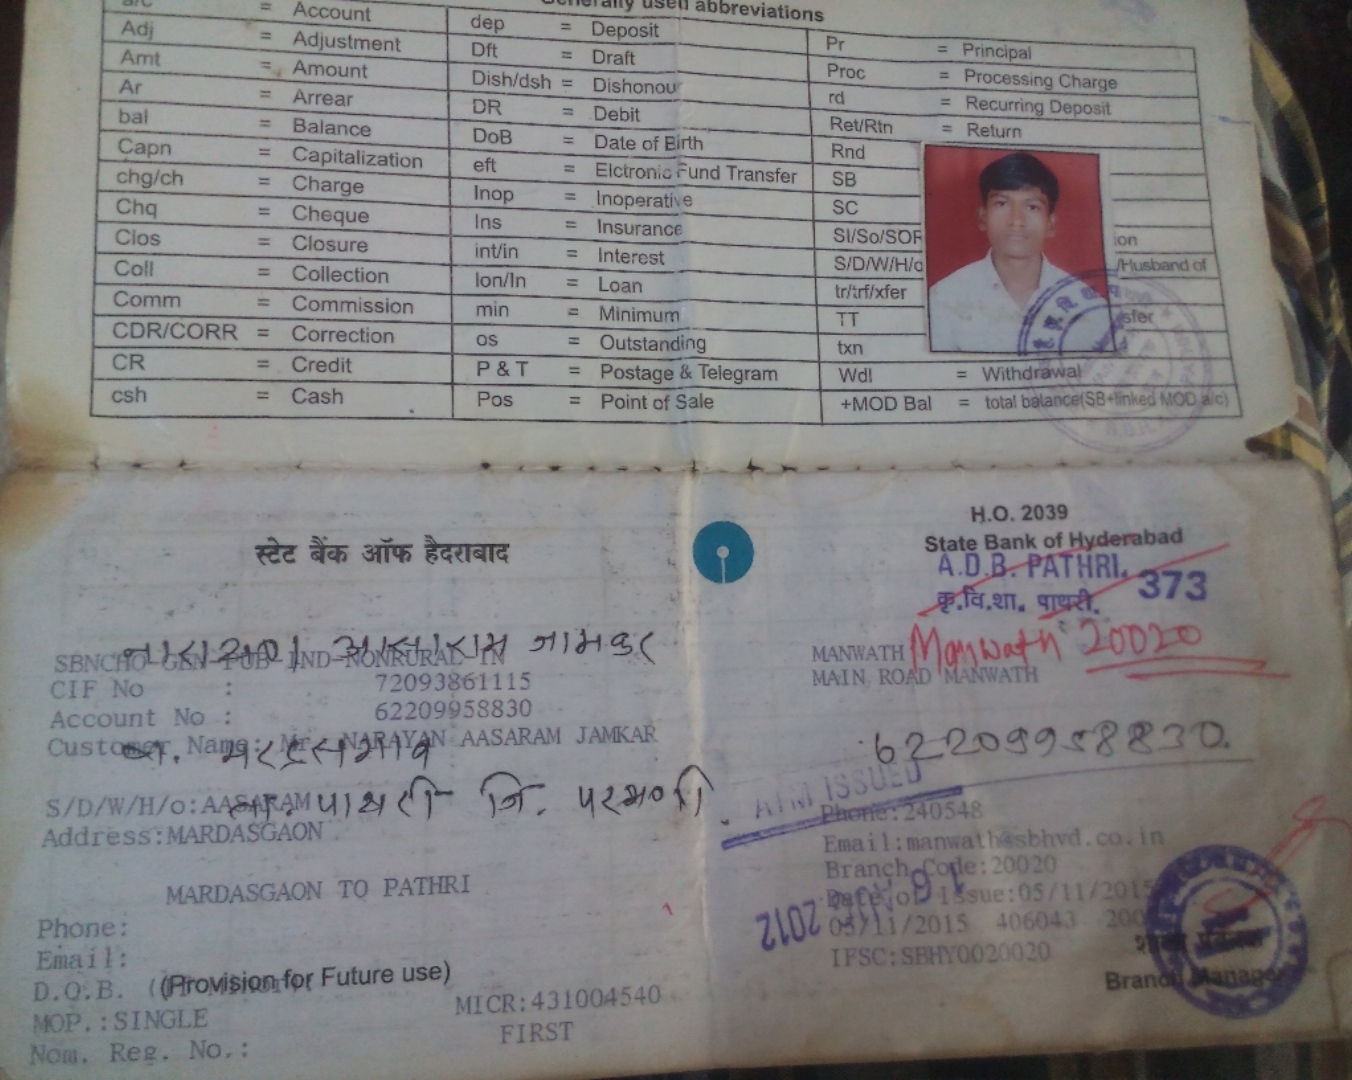 Generally used abbreviations
a/c = Account
Adj = Adjustment
Amt = Amount
Ar = Arrear
bal = Balance
Capn = Capitalization
chg/ch = Charge
Chq = Cheque
Clos = Closure
Coll = Collection
Comm = Commission
CDR/CORR = Correction
CR = Credit
csh = Cash
dep = Deposit
Dft = Draft
Dish/dsh = Dishonour
DR = Debit
DoB = Date of Birth
eft = Elctronic Fund Transfer
Inop = Inoperative
Ins = Insurance
int/in = Interest
lon/ln = Loan
min = Minimum
os = Outstanding
P & T = Postage & Telegram
Pos = Point of Sale
Pr = Principal
Proc = Processing Charge
rd = Recurring Deposit
Ret/Rtn = Return
Rnd
SB
SC
SI/So/SOR
S/D/W/H/o /Husband of
tr/trf/xfer
TT
txn
Wdl = Withdrawal
+MOD Bal = total balance(SB+linked MOD a/c)
स्टेट बैंक ऑफ हैदराबाद
H.O. 2039
State Bank of Hyderabad
A.D.B. PATHRI.
कृ.वि.शा. पाथरी. 373
नारायण आसाराम जामकर
SBNCHQ-GEN-PUB-IND-NONRURAL-IN
CIF No : 72093861115
Account No : 62209958830
Customer Name: Mr. NARAYAN AASARAM JAMKAR
रा. मरडसगाव
S/D/W/H/o:AASARAM
ता. पाथरी जि. परभणी
Address:MARDASGAON
MARDASGAON TO PATHRI
Phone:
Email:
D.O.B.
(Provision for Future use)
MOP.:SINGLE
Nom. Reg. No.:
MICR:431004540
FIRST
MANWATH Manwath 20020
MAIN ROAD MANWATH
62209958830.
ATM ISSUED
Phone:240548
Email:manwath@sbhyd.co.in
Branch Code:20020
Date of Issue:05/11/2015
2012
05/11/2015 406043
IFSC:SBHY0020020
शाखा प्रबंधक
Branch Manager